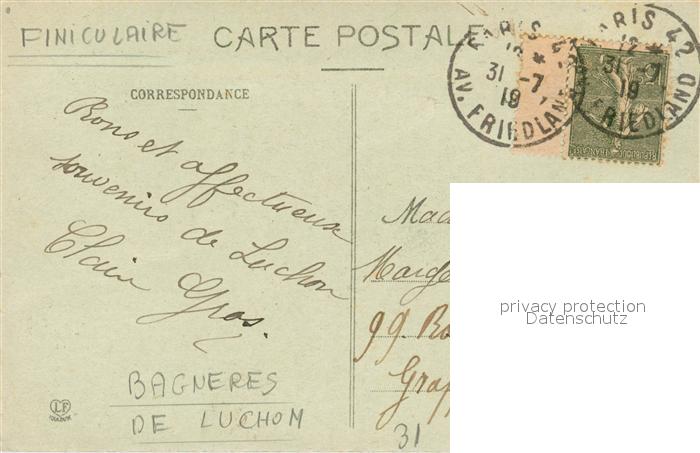 FINICULAIRE
CARTE POSTALE
PARIS 42
12 *
31 -7
19
AV. FRIEDLAND
PARIS 42
12 *
31 -7
19
FRIEDLAND
REPUBLIQUE FRANÇAISE
CORRESPONDANCE
Bons et affectueux
souvenirs de Luchon
Clair Gros.
Mad
Marg
99.
Gra
privacy protection
Datenschutz
LF
BAGNERES
DE LUCHOM
31